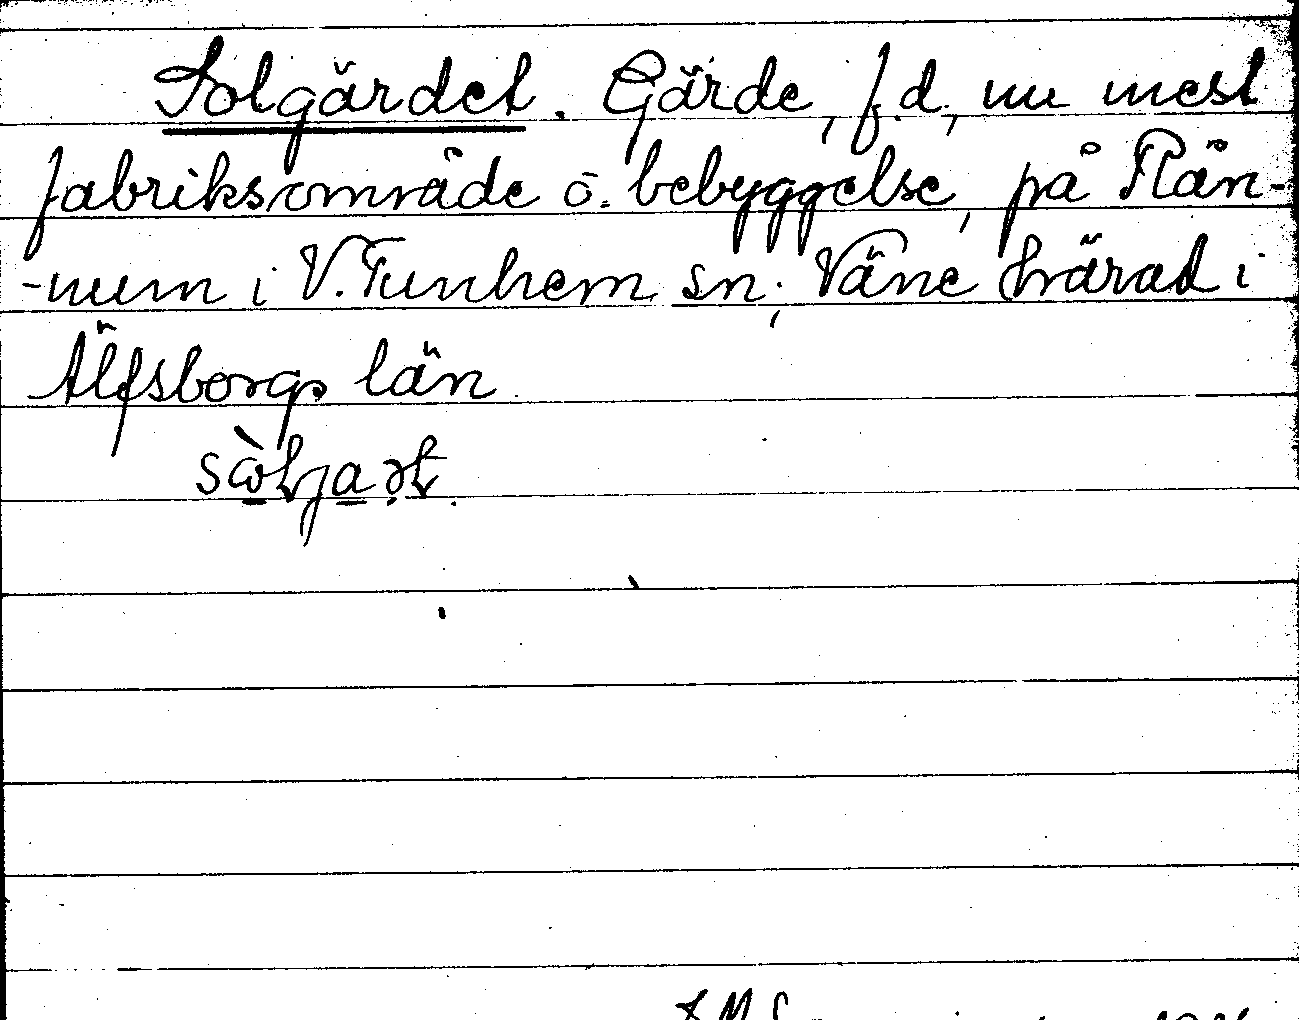 Solgärdet. Gärde, f.d., nu mest
fabriksområde o. bebyggelse, på Rån-
-num i V. Tunhem sn; Väne härad i
Älfsborgs län